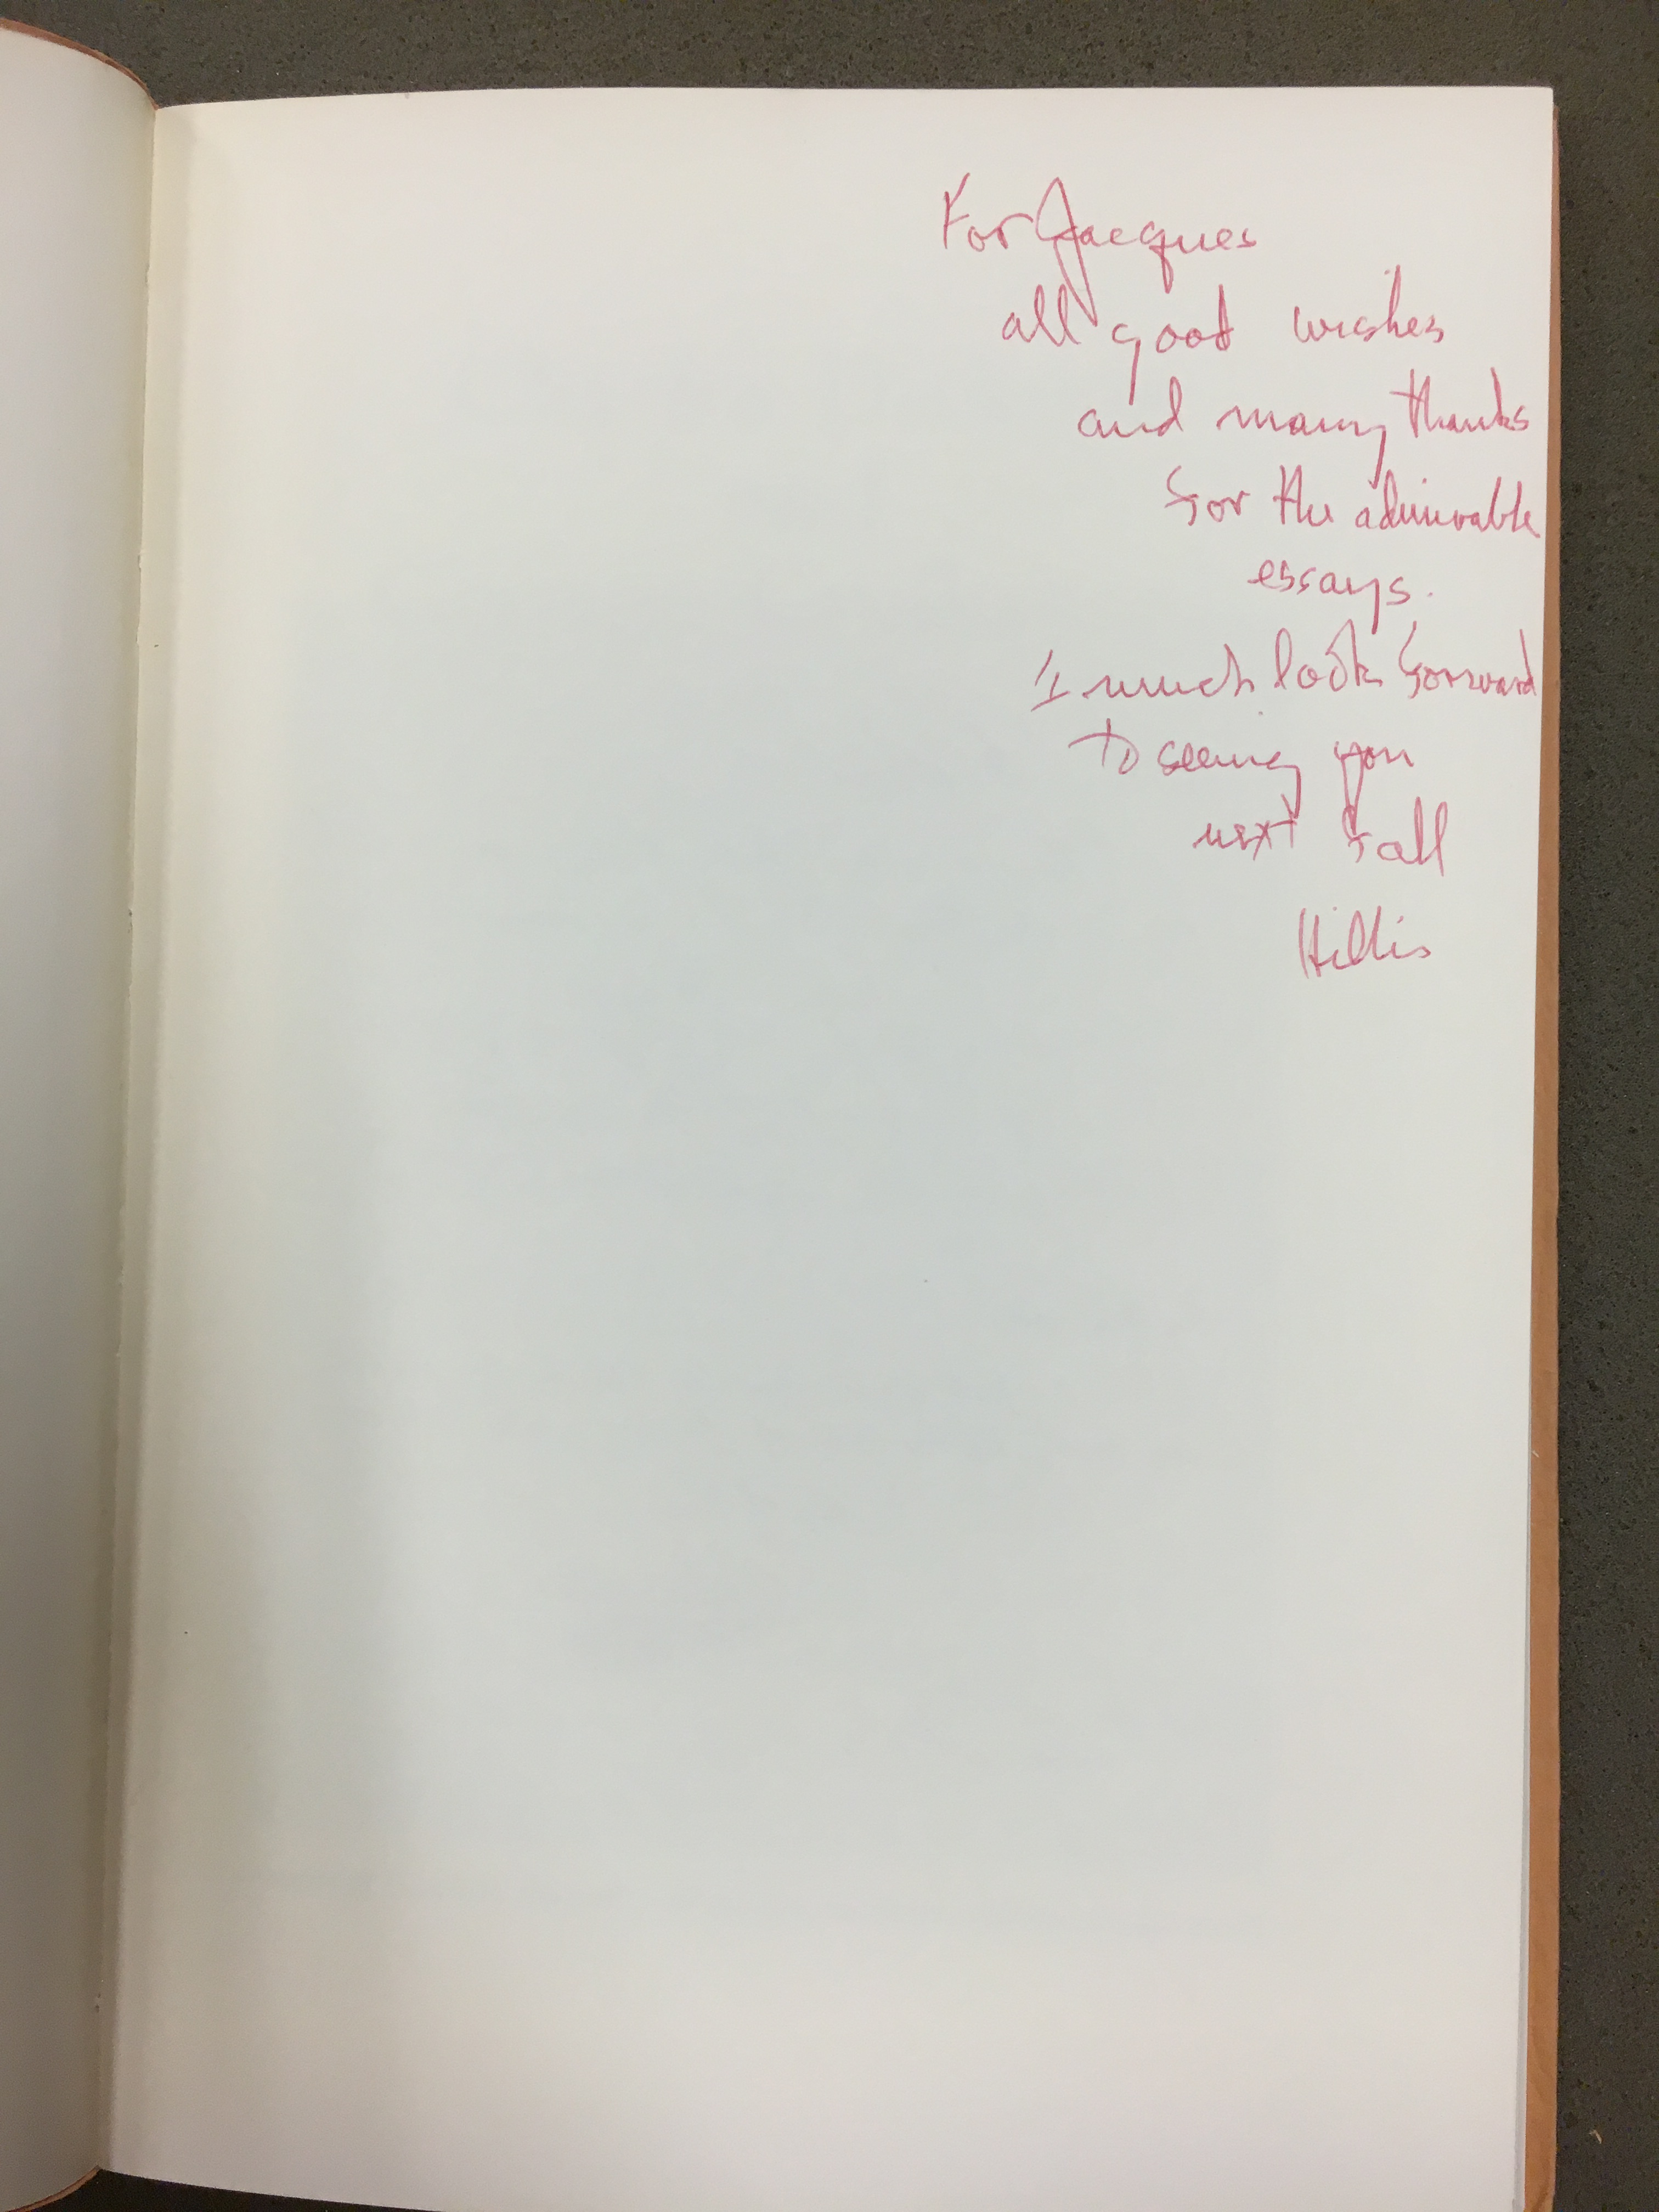 For Jacques
all good wishes
and many thanks
for the admirable
essays.
I much look forward
to seeing you
next fall
Hillis